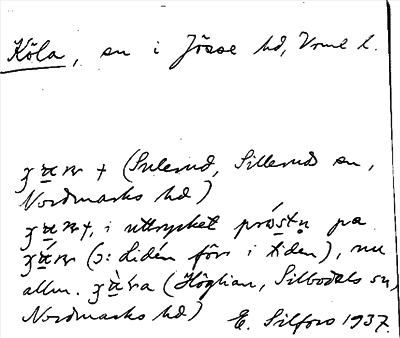 Köla, sn i Jösse hd, Vrml l.
(Sulerud, Sillerud sn,
Nordmarks hd)
i uttrycket pa
(ɔ: lidén förr i tiden), nu
allm. (Höglian, Silbodals sn,
Nordmarks hd) E. Silfors 1937.